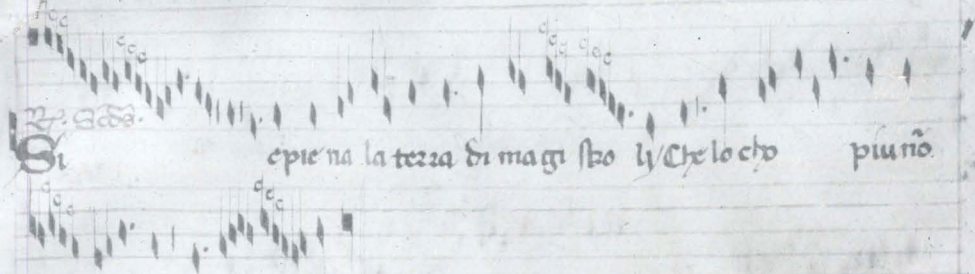 Si epie na la terra di magi stro ly / Che lo cho piu nõ.